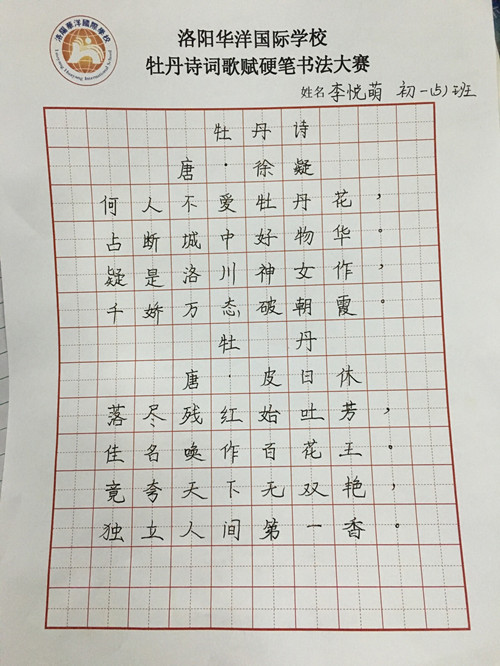 洛陽華洋國際學校
Luoyang Huayang International School
洛阳华洋国际学校
牡丹诗词歌赋硬笔书法大赛
姓名 李悦萌 初一(5)班
牡丹诗
唐·徐凝
何人不愛牡丹花，
占断城中好物华。
疑是洛川神女作，
千娇万态破朝霞。
牡丹
唐·皮日休
落尽残红始吐芳，
佳名唤作百花王。
竞夸天下无双艳，
独立人间第一香。